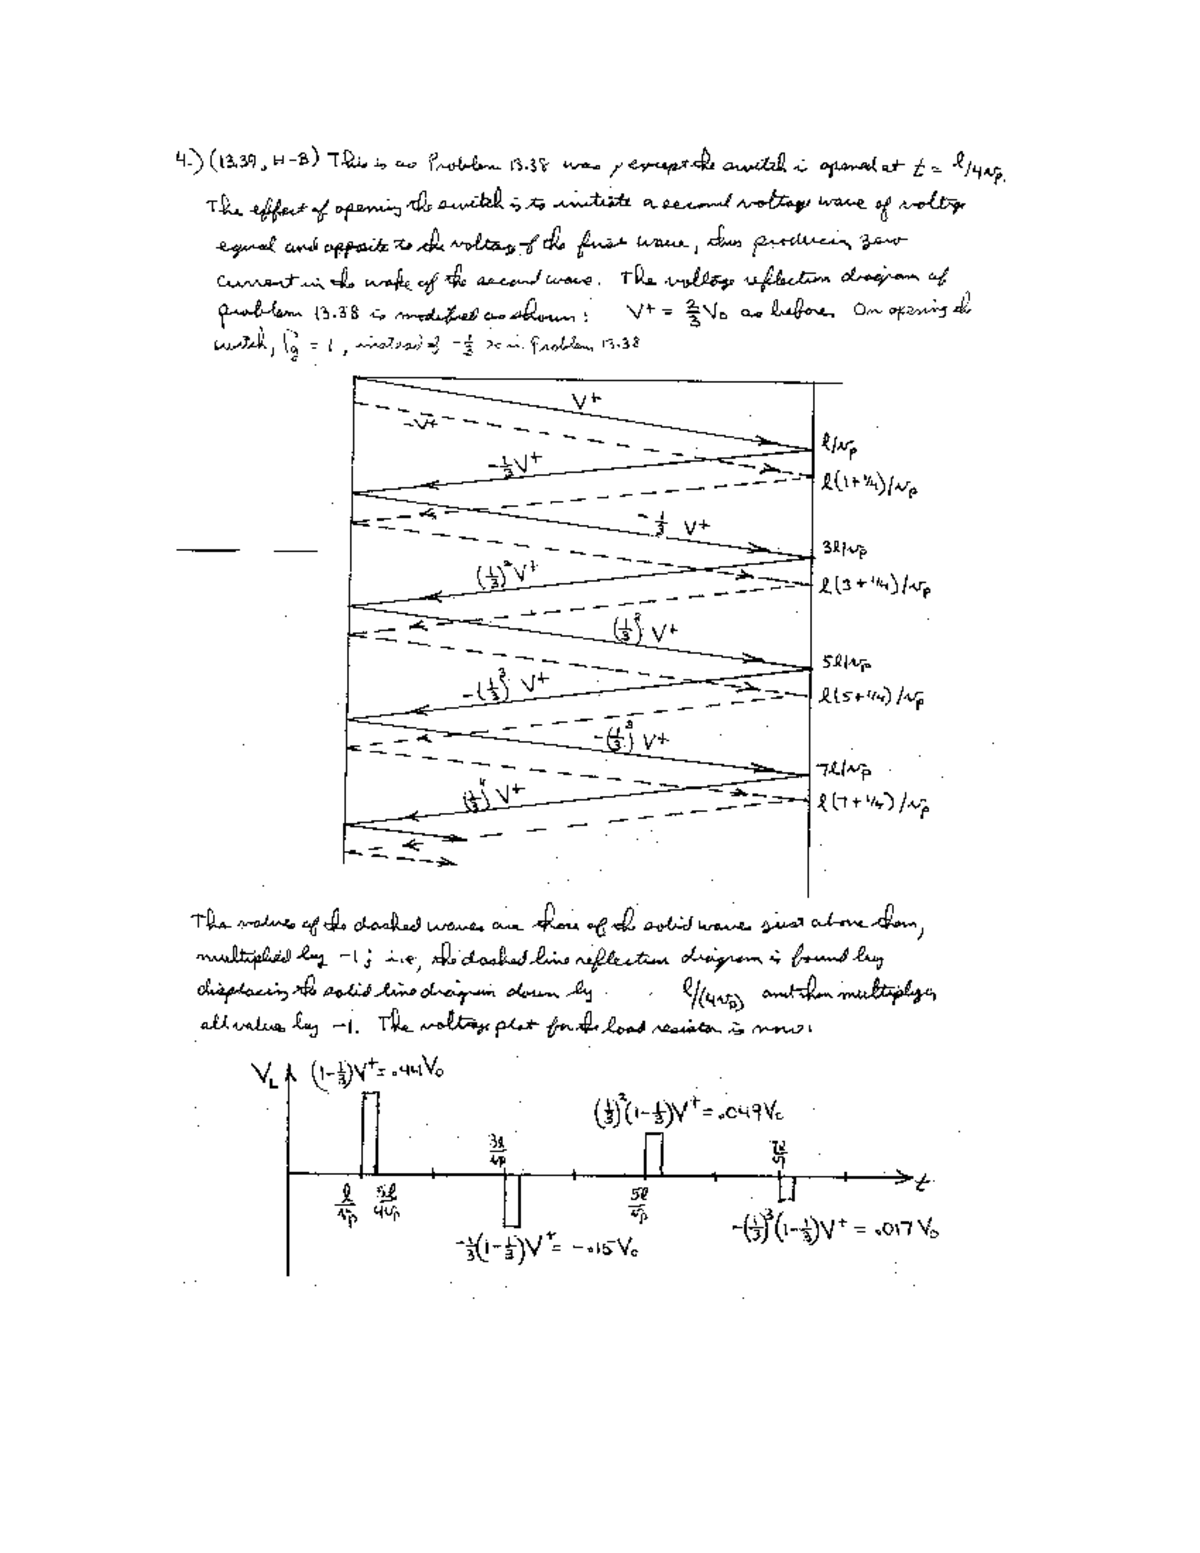 4.) (13.39, H-B) This is as Problem 13.38 was, except the switch is opened at t = l/4vp.
The effect of opening the switch is to initiate a second voltage wave of voltage
equal and opposite to the voltage of the first wave, thus producing zero
current in the wake of the second wave. The voltage reflection diagram of
problem 13.38 is modified as shown: V+ = 2/3 V0 as before. On opening the
switch, Γg = 1, instead of -1/3 as in Problem 13.38
V+
-V+
l/vp
-1/3 V+
l(1+1/4)/vp
-1/3 V+
3l/vp
(1/3)² V+
l(3+1/4)/vp
(1/3)² V+
5l/vp
-(1/3)³ V+
l(5+1/4)/vp
-(1/3)³ V+
7l/vp
(1/3)⁴ V+
l(7+1/4)/vp
The values of the dashed waves are those of the solid waves just above them,
multiplied by -1; i.e., the dashed line reflection diagram is found by
displacing the solid line diagram down by l/(4vp) and then multiplying
all values by -1. The voltage plot for the load resistor is now:
VL (1-1/3)V+ = .44V0
(1/3)²(1-1/3)V+ = .049V0
3l/vp
l/vp 5l/4vp
5l/vp
t
-1/3(1-1/3)V+ = -.15V0
-(1/3)³(1-1/3)V+ = .017V0